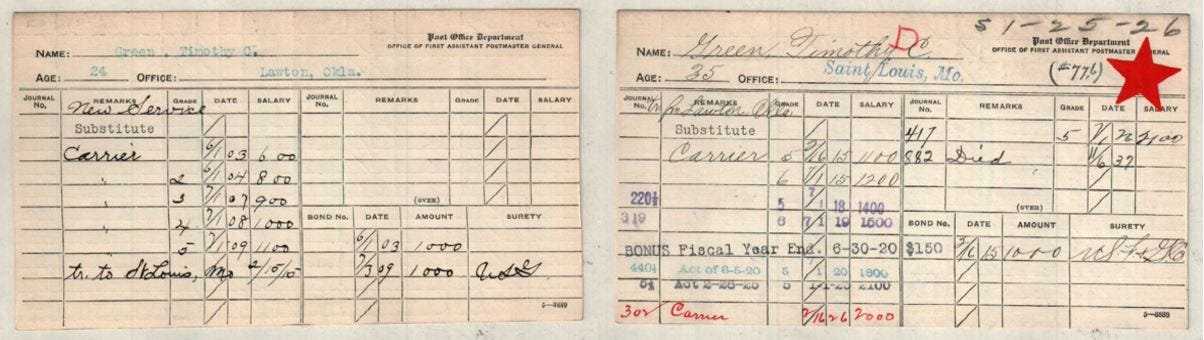 Post Office Department
OFFICE OF FIRST ASSISTANT POSTMASTER GENERAL
NAME: Green, Timothy C.
AGE: 24 OFFICE: Lawton, Okla.
JOURNAL No. REMARKS GRADE DATE SALARY JOURNAL No. REMARKS GRADE DATE SALARY
New Service
Substitute
Carrier 6/1 03 600
" 2 6/1 04 800
" 3 7/1 07 900
(OVER)
" 4 7/1 08 1000 BOND No. DATE AMOUNT SURETY
" 5 7/1 09 1100 6/1 03 1000
tr. to St Louis, Mo 2/15/15 7/3 09 1000
5—9889
51-25-26
Post Office Department
OFFICE OF FIRST ASSISTANT POSTMASTER GENERAL
NAME: Green, Timothy C. D
AGE: 35 OFFICE: Saint Louis, Mo. (#776)
JOURNAL No. REMARKS GRADE DATE SALARY JOURNAL No. REMARKS GRADE DATE SALARY
tr fm Lawton Okla.
Substitute 417 5 7/1 2100
Carrier 5 2/16 15 1100 882 Died 11/6 37
6 7/1 15 1200
220½ 5 7/1 18 1400 (OVER)
319 6 7 1 19 1500 BOND No. DATE AMOUNT SURETY
BONUS Fiscal Year End. 6-30-20 $150 2/16 15 1000
440½ Act of 6-5-20 5 1 20 1800
5½ Act 2-28-25 5 1-1-25 2100
302 Carrier 2/16 26 2000
5—9889